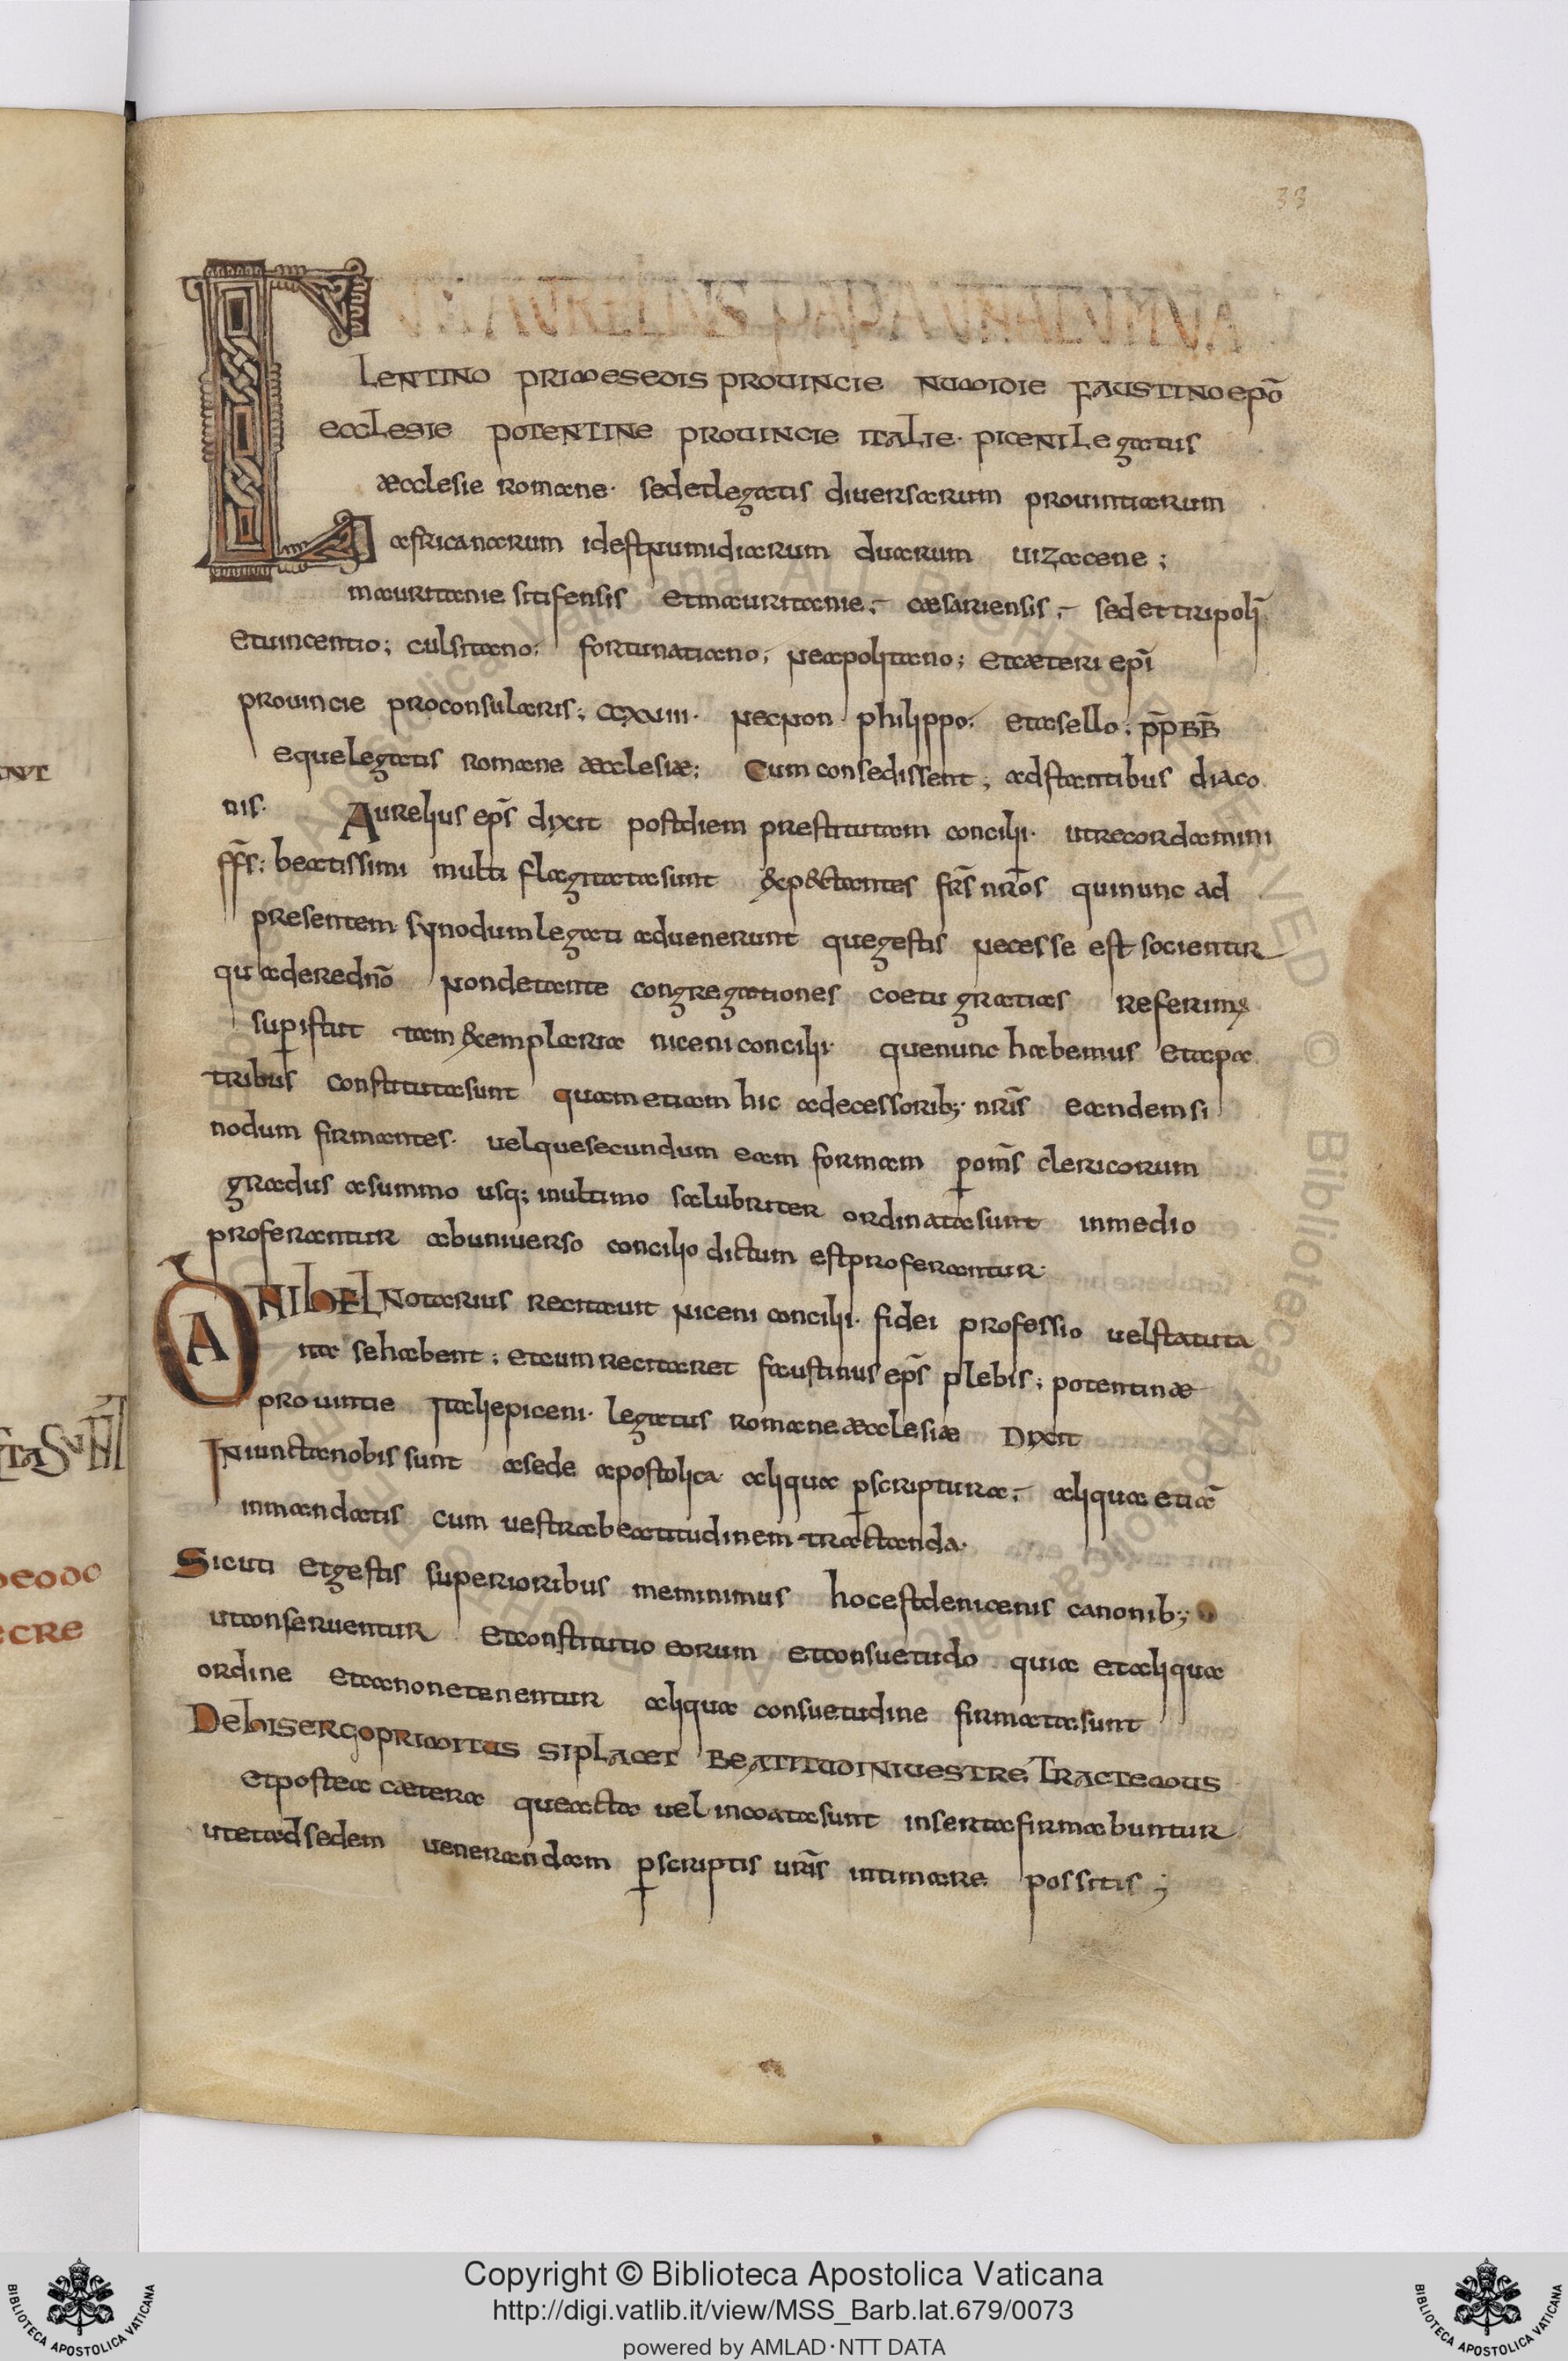 33
AURELIUS PAPA UNA CUM VA
LENTINO PRIMESEDIS PROVINCIE NUMIDIE FAUSTINO epō
ecclesie POTENTINE PROVINCIE ITALIE· PICENI Legatus
æcclesie romane· sedetlegatis diversarum provintiarum
africanarum idestnumidiarum duarum uizacene;
mauritanie sitifensis etmauritanie;- cæsariensis;- sedettripoli
etuincentio; culsitano; fortunatiano; neapolitano; etcæteri epī
provincie proconsularis; ccxviii· necnon philippo; etasello; p̄p̄BB̄
equelegatis romane æcclesiæ; Cum consedissent, adstantibus diaco
nis· Aurelius ep̄s dixit postdiem prestitutam concilii· utrecordamini
f̄f̄s; beatissimi multa flagitatasunt &p&ctantes fr̄s nr̄os quinunc ad
presentem synodumlegati aduenerunt quegestis necesse est socientur
quaderedn̄o nondetante congregationes coetu gratias referimꝰ
suꝑistut tam &emplaria niceniconcilii· quenunc habemus etapa
tribus constitutasunt quametiam hic adecessorib;· nr̄is eandemsi
nodum firmantes· uelquesecundum eam formam ꝑom̄s clericorum
gradus asummo usq; inultimo salubriter ordinatasunt inmedio
proferantur abuniverso concilio dictum estproferantur·
DANIhELNotarius recitauit niceni concilii· fidei professio uelstatuta
ita sehabent; etcumrecitaret faustinus ep̄s plebis; potentinæ
prouintie Italiepiceni· legatus romaneæcclesiæ Dixit
Iniunctanobissunt asede apostolica aliqua ꝑscriptura;- aliqua etiā
inmandatis cum uestrabeatitudinem tractanda·
Sicuti etgestis superioribus meminimus hocestdenicenis canonib;;
utconseruentur etconstitutio eorum etconsuetudo quia etaliqua
ordine etcanonetenentur aliqua consuetudine firmatasunt
Dehisergoprimitus siplacet BEATITUDINIVESTRE TRACTEMUS
etpostea cætera queacta uel incoatasunt insertafirmabuntur
utetadsedem uenerandam ꝑscriptis ur̄is intimare possitis;
ECRE
Copyright © Biblioteca Apostolica Vaticana
http://digi.vatlib.it/view/MSS_Barb.lat.679/0073
powered by AMLAD·NTT DATA
BIBLIOTECA APOSTOLICA VATICANA
BIBLIOTECA APOSTOLICA VATICANA